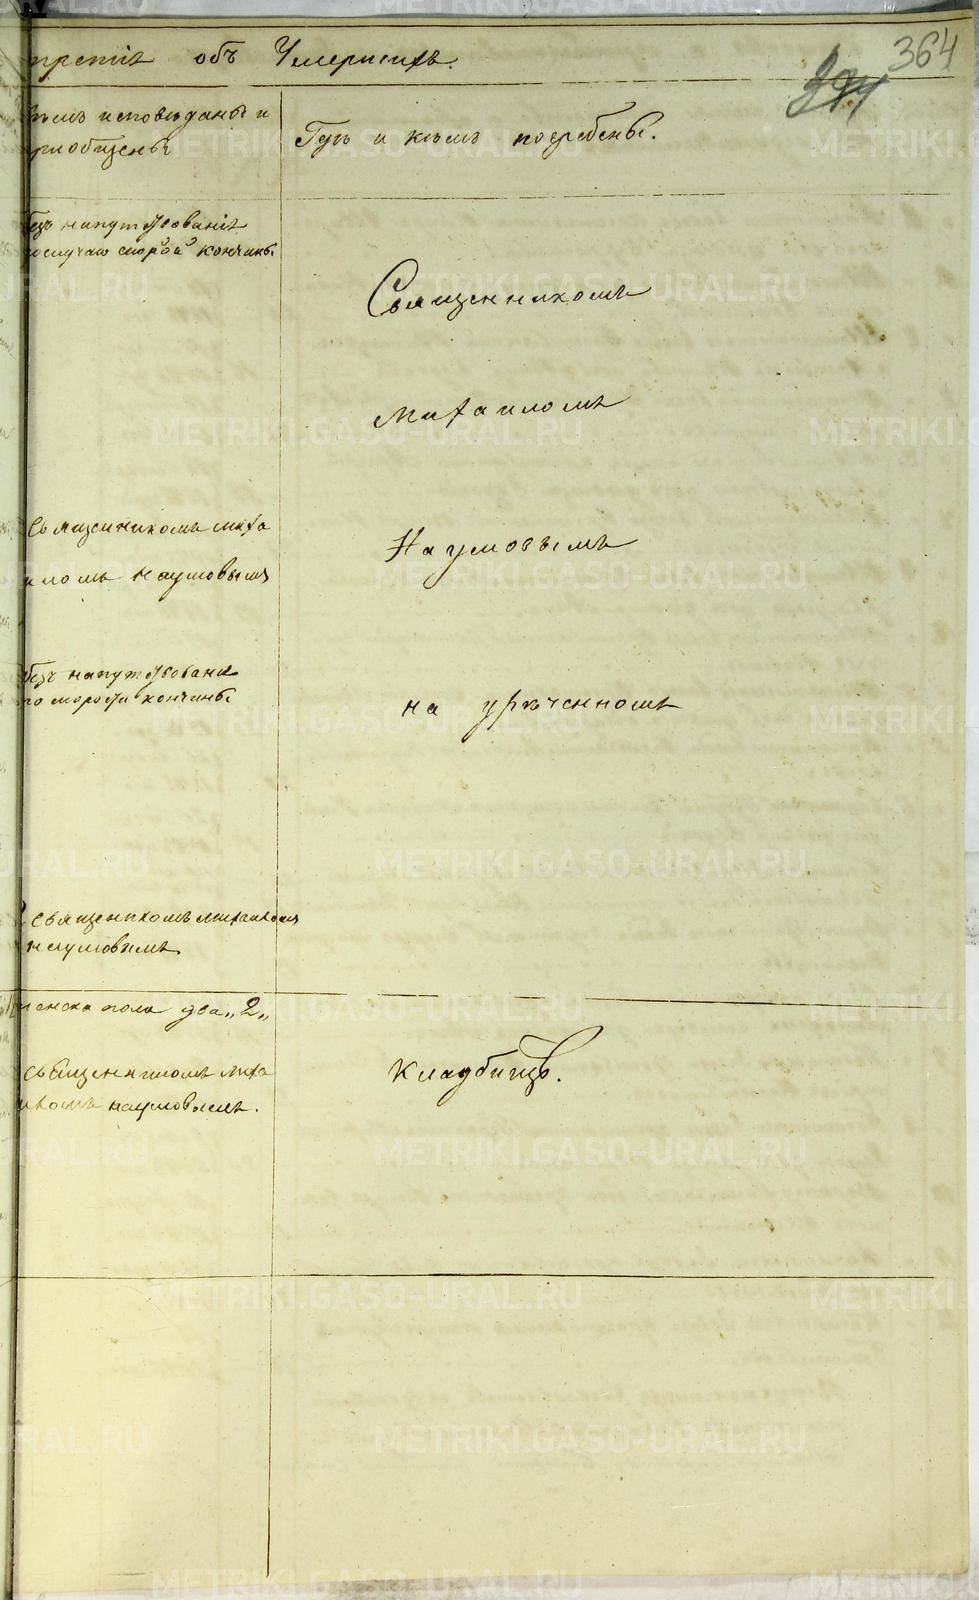 364
третiя объ Умершихъ.
374
Кѣмъ исповѣданы и
прiобщены
Гдѣ и кѣмъ погребены.
безъ напутствованiя
по случаю скорой кончины
Священникомъ
Михаиломъ
Священникомъ Миха
иломъ Наумовымъ
Наумовымъ
безъ напутствованiя
по скорости кончины
на урѣченномъ
Священикомъ Михаиломъ
Наумовымъ
женска пола два „2„
Священникомъ Миха
иломъ Наумовымъ.
Кладбищѣ.
METRIKI.GASO-URAL.RU